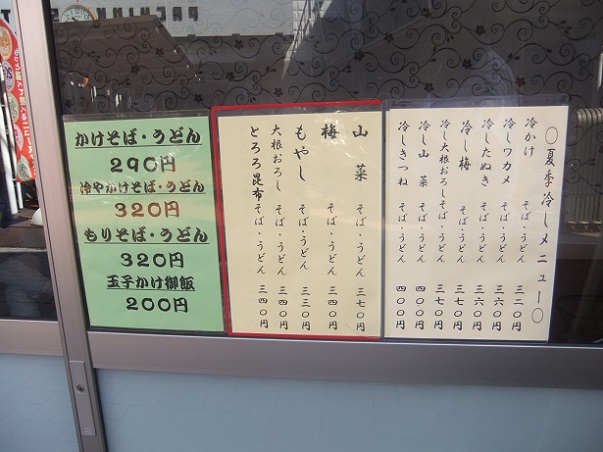 かけそば・うどん
290円
冷やかけそば・うどん
320円
もりそば・うどん
320円
玉子かけ御飯
200円
山菜 そば・うどん 三七〇円
梅 そば・うどん 三四〇円
もやし そば・うどん 三三〇円
大根おろし そば・うどん 三四〇円
とろろ昆布 そば・うどん 三四〇円
〇夏季冷しメニュー〇
冷かけ そば・うどん 三二〇円
冷しワカメ そば・うどん 三六〇円
冷したぬき そば・うどん 三六〇円
冷し梅 そば・うどん 三七〇円
冷し大根おろしそば・うどん 三七〇円
冷し山菜 そば・うどん 四〇〇円
冷しきつね そば・うどん 四〇〇円